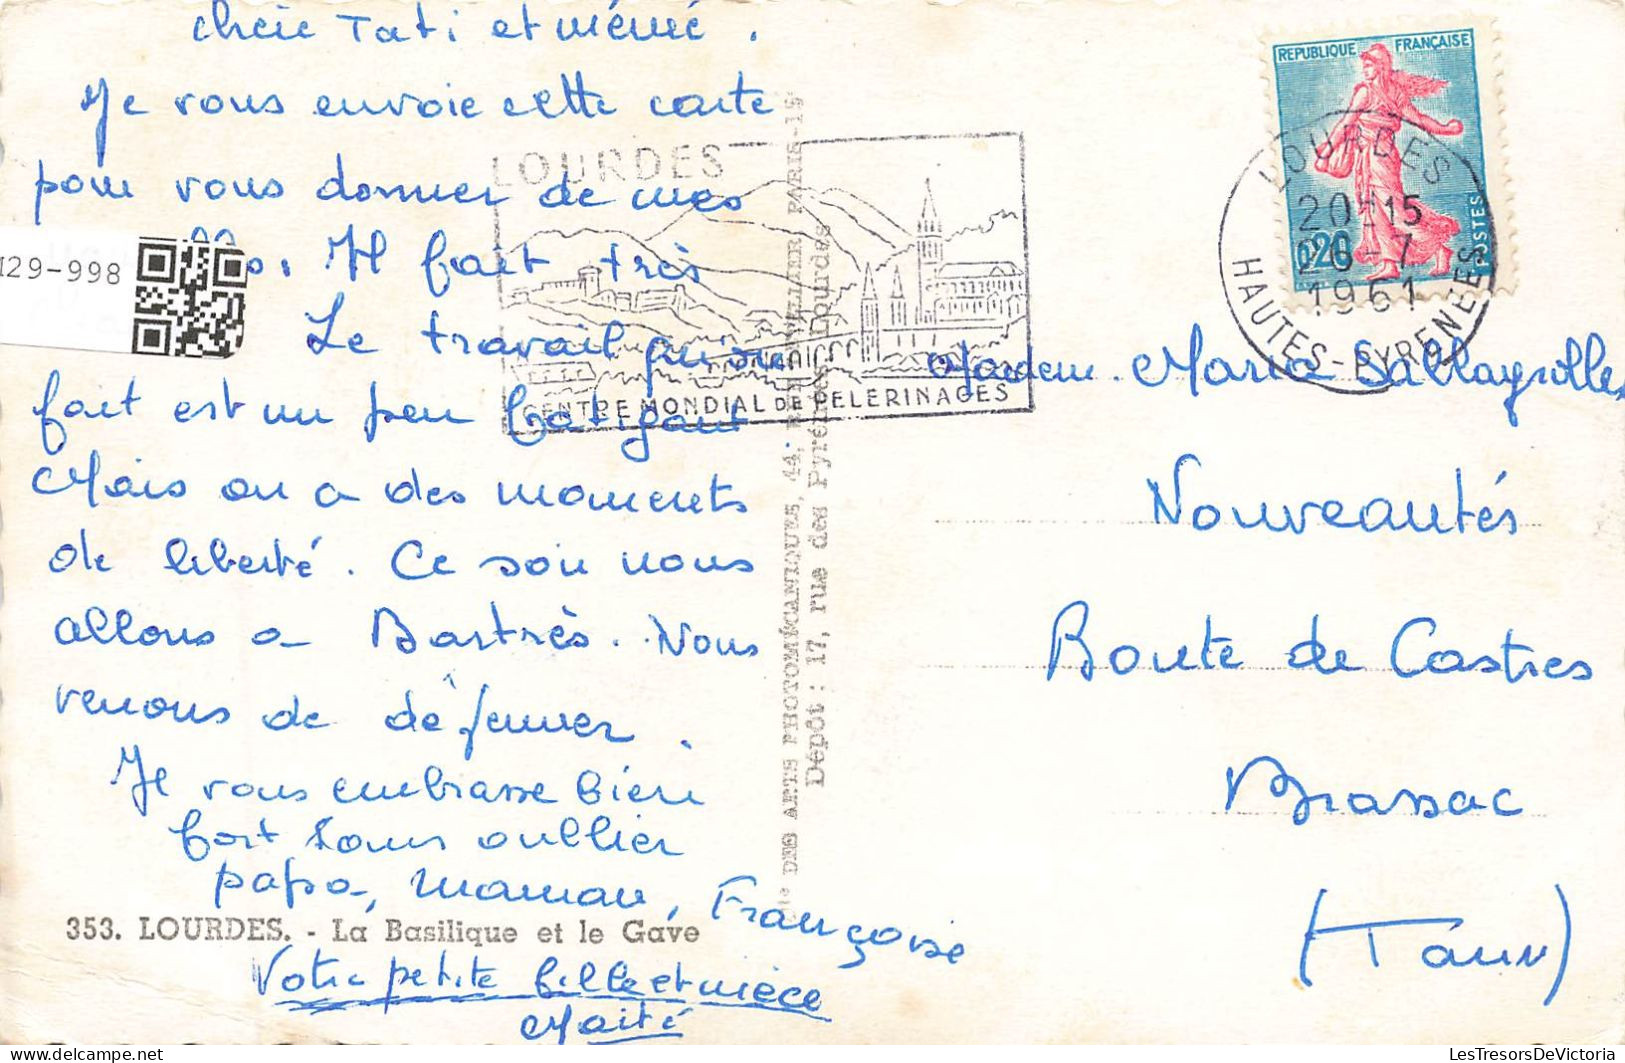 chère Tati et mémé.
Je vous envoie cette carte
pour vous donner de mes
Il fait très
Le travail qu'on
fait est un peu fatigant
Mais on a des moments
de liberté. Ce soir nous
allons a Bartrès. Nous
venons de déjeuner.
Je vous embrasse bien
fort sans oublier
papa, maman, Françoise
353. LOURDES. - La Basilique et le Gave
Votre petite fille et nièce
Maité
129-998
LOURDES
CENTRE MONDIAL DE PELERINAGES
DES ARTS PHOTOMÉCANIQUES, 44, PARIS-15
Dépôt : 17, rue des Pyrénées Lourdes
REPUBLIQUE FRANÇAISE
0,20
POSTES
LOURDES
20H15
20-7
1961
HAUTES-PYRENEES
Madem. Maria Sallayrolles
Nouveautés
Route de Castres
Brassac
(Tarn)
LesTresorsDeVictoria.com